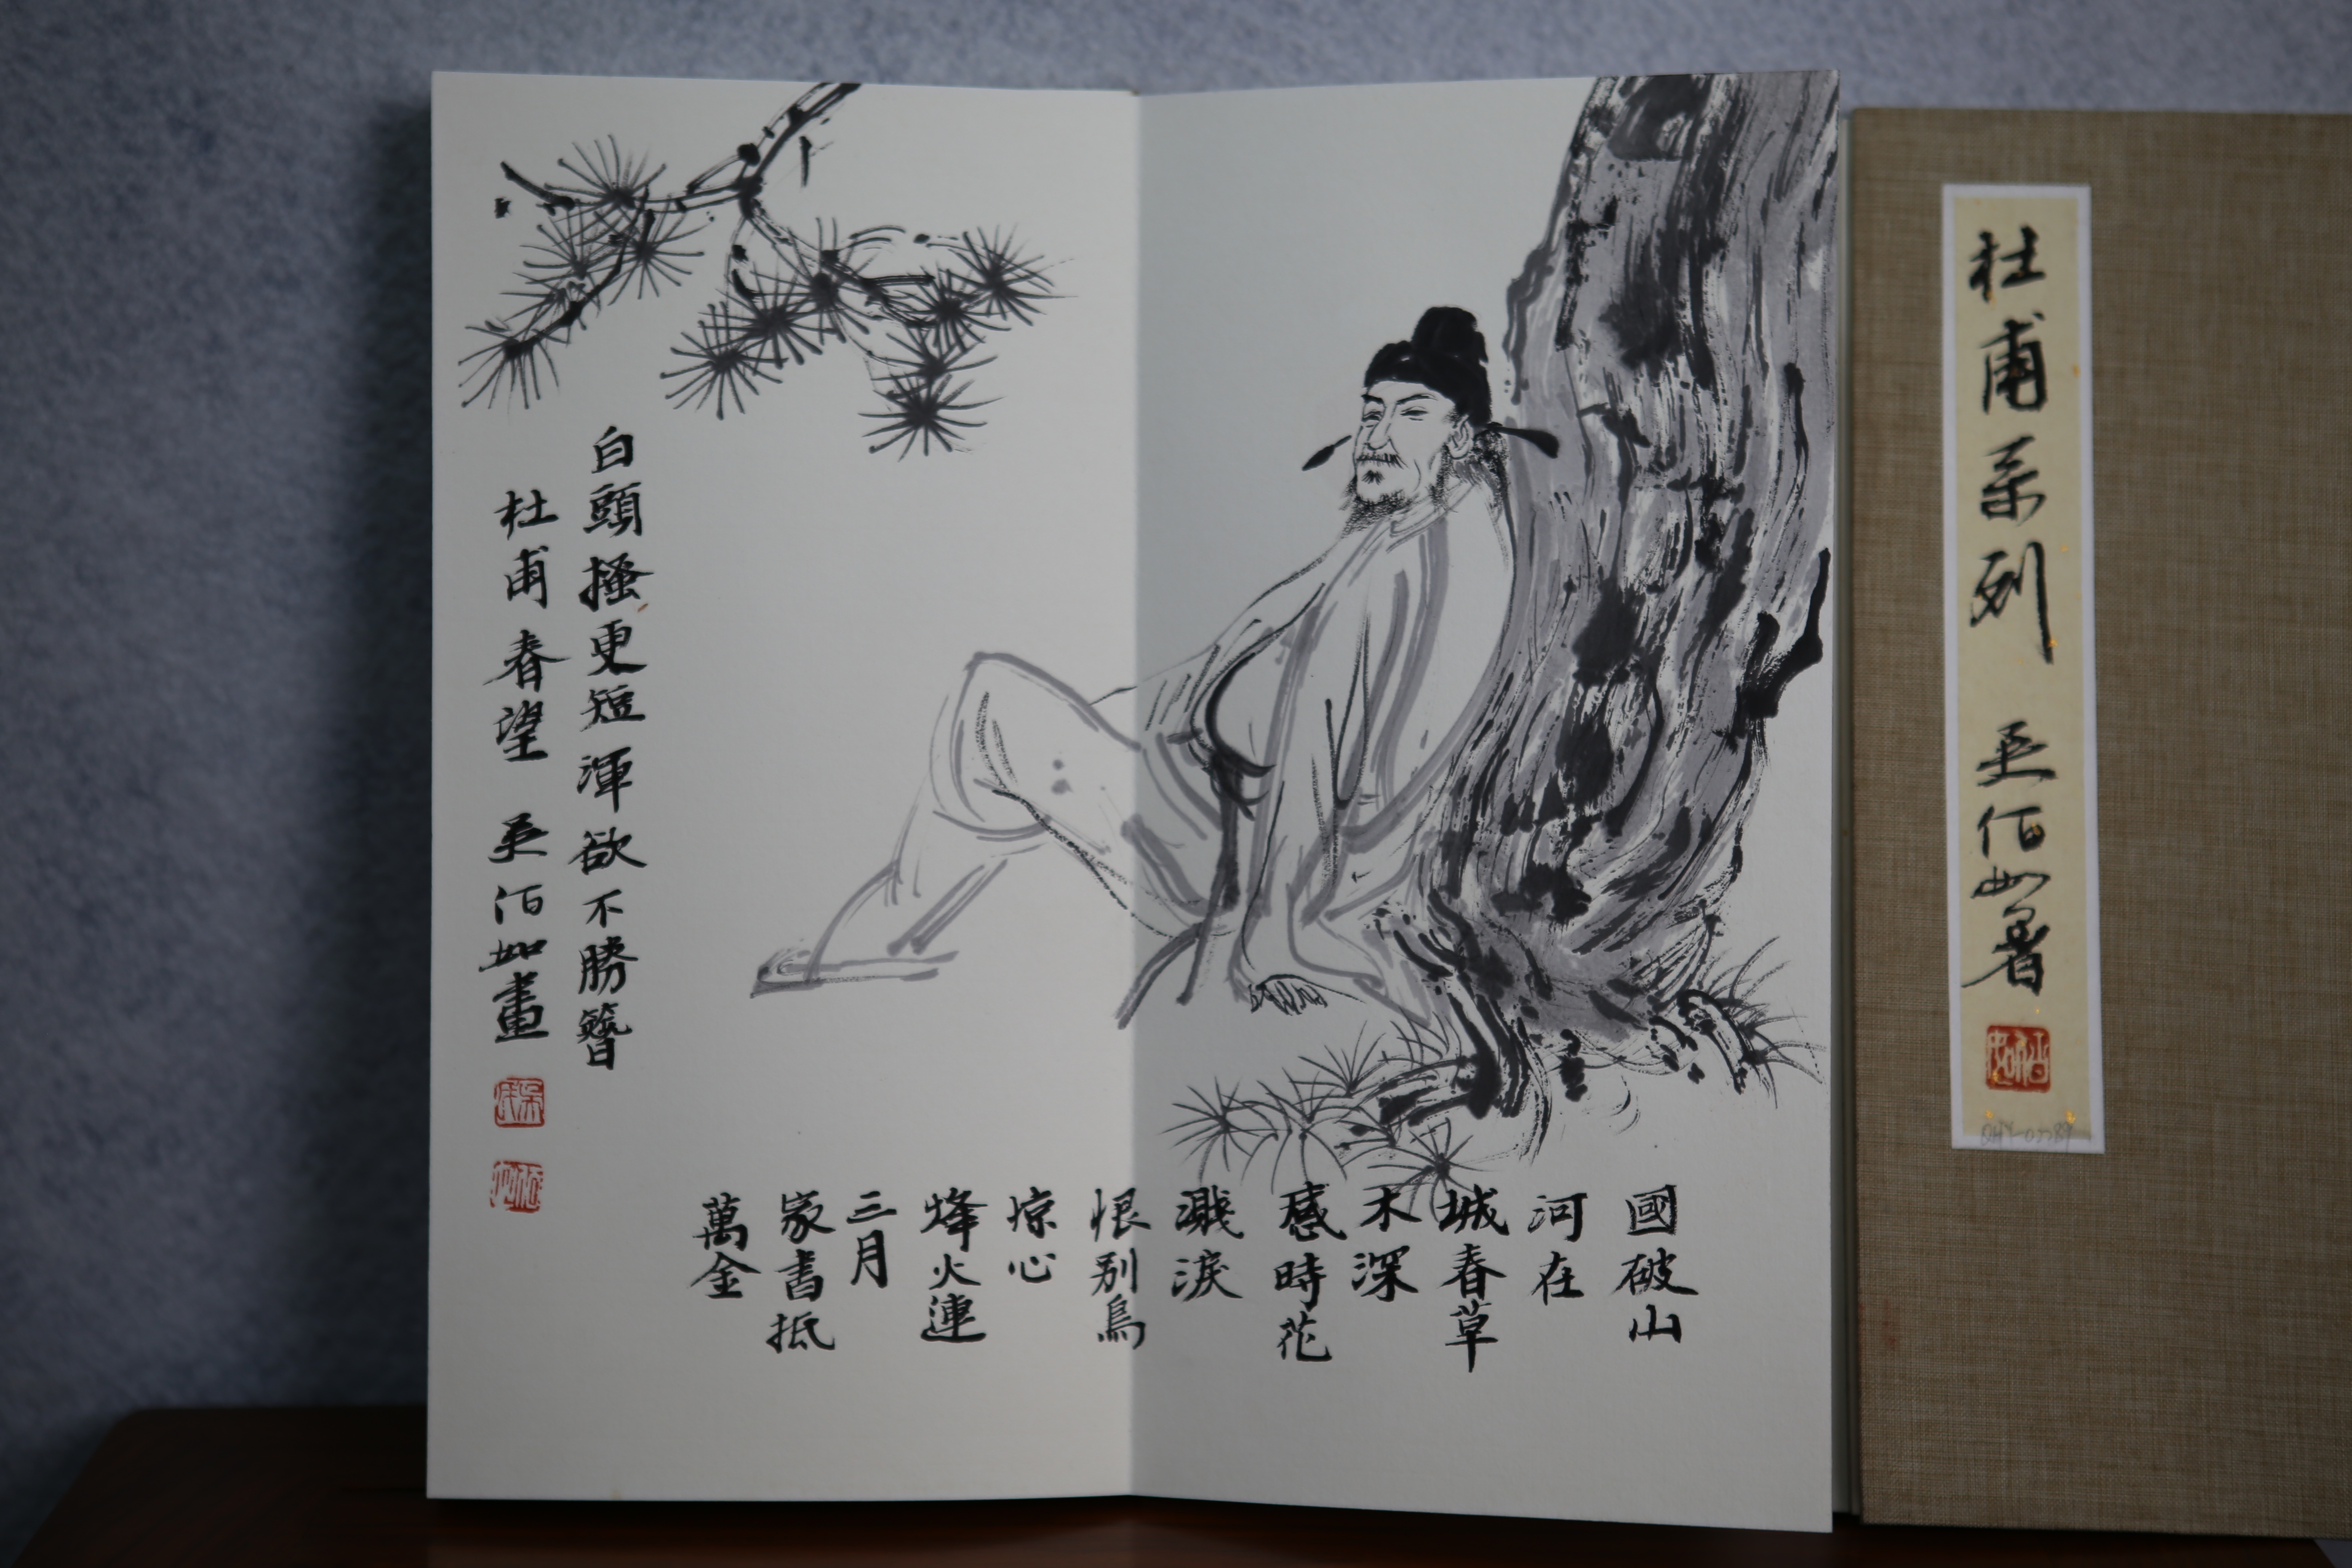 杜甫系列 吴佰如著
國破山
河在
城春草
木深
感時花
濺淚
恨别鳥
惊心
烽火連
三月
家書抵
萬金
白頭搔更短渾欲不勝簪
杜甫春望 吴佰如畫